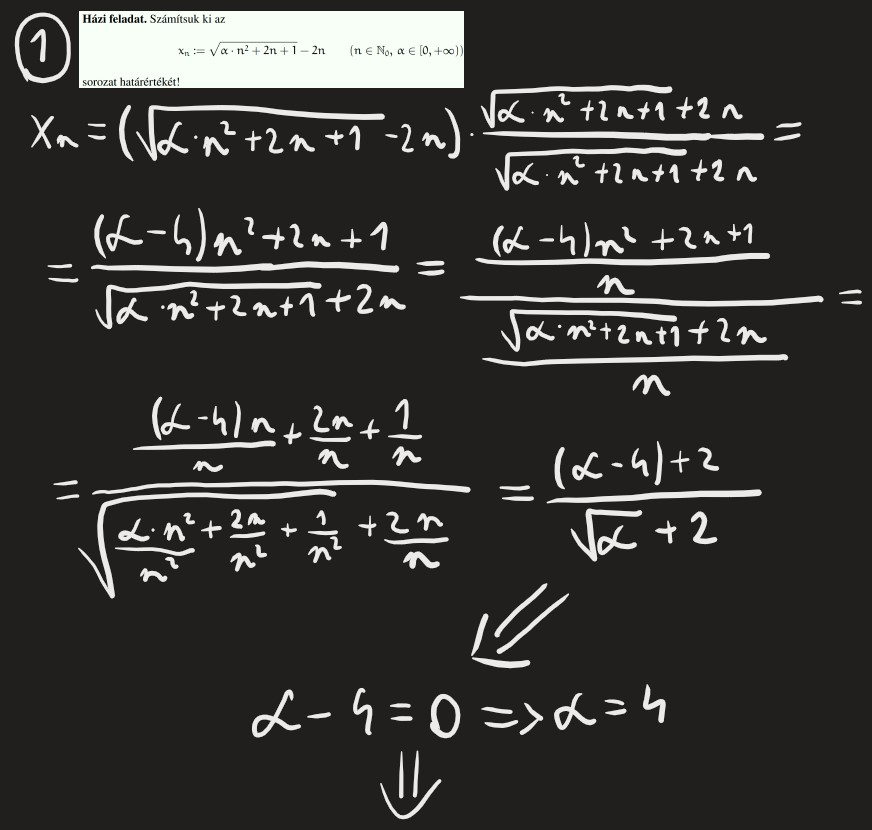 1
Házi feladat. Számítsuk ki az
xₙ := √(α · n² + 2n + 1) − 2n (n ∈ ℕ₀, α ∈ [0, +∞))
sorozat határértékét!
Xₙ = (√(α · n² + 2n + 1) − 2n) · (√(α · n² + 2n + 1) + 2n) / (√(α · n² + 2n + 1) + 2n) =
= ((α − 4)n² + 2n + 1) / (√(α · n² + 2n + 1) + 2n) = (((α − 4)n² + 2n + 1) / n) / ((√(α · n² + 2n + 1) + 2n) / n) =
= ((α − 4)n / n + 2n/n + 1/n) / (√(α · n²/n² + 2n/n² + 1/n²) + 2n/n) = ((α − 4) + 2) / (√α + 2)
⇙
α − 4 = 0 => α = 4
⇓